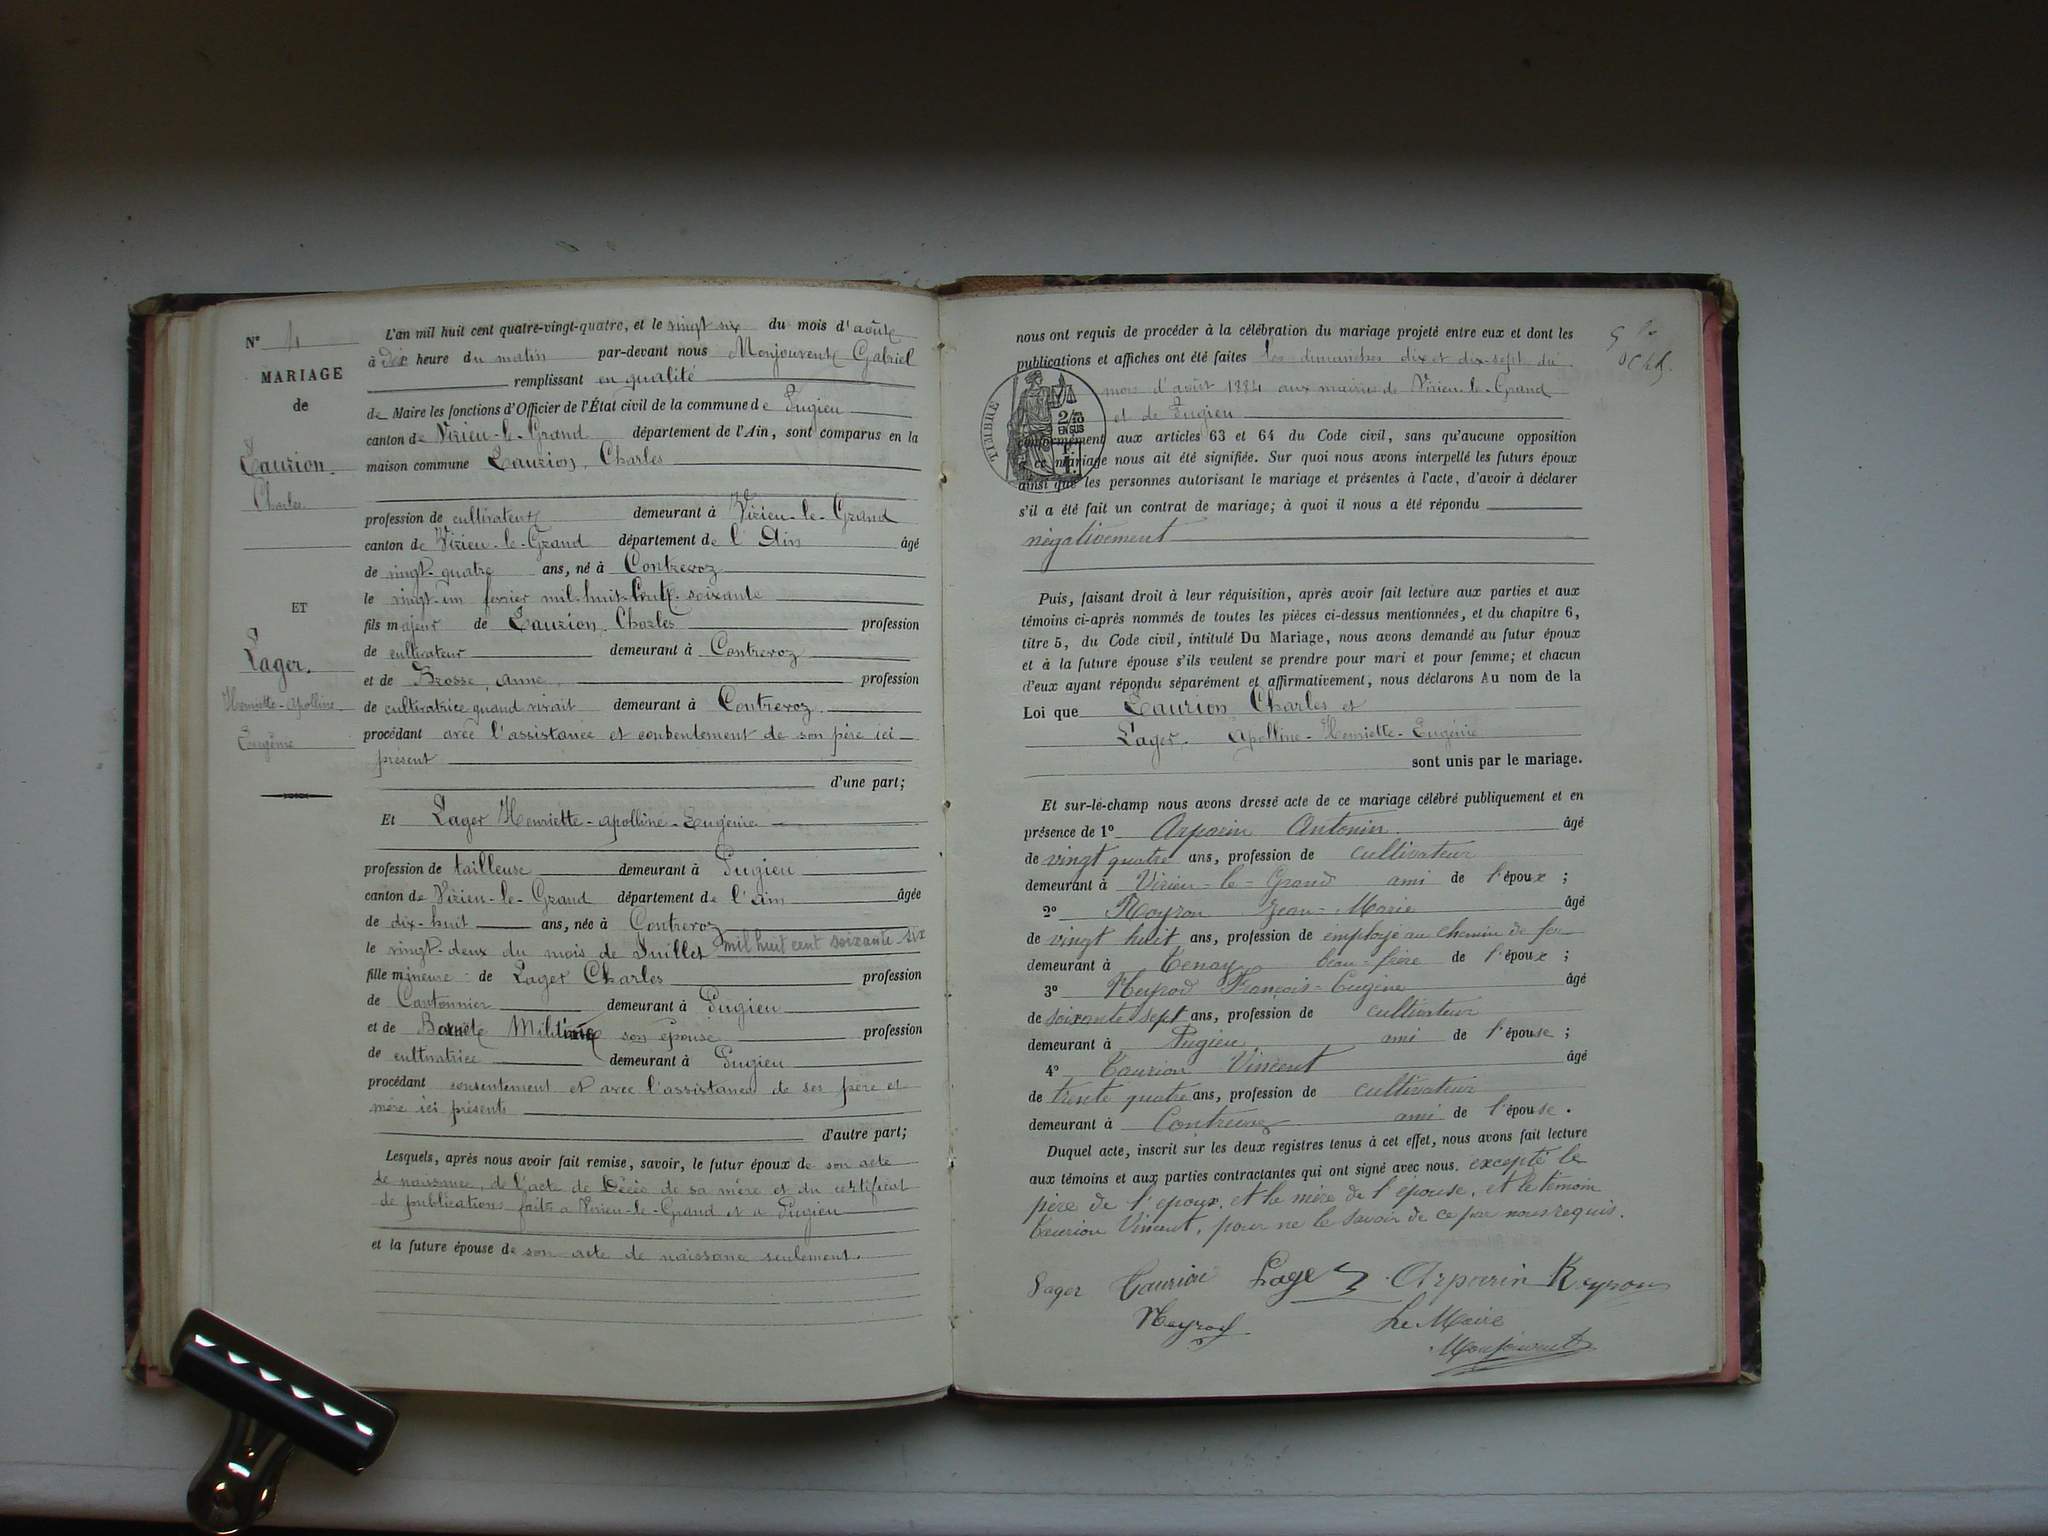 N° 4
MARIAGE
de
Taurion.
Charles
ET
Lager.
Henriette-Apolline
Eugénie
L'an mil huit cent quatre-vingt-quatre, et le vingt six du mois d'août
à dix heure du matin par-devant nous Monjouvent Gabriel
remplissant en qualité
de Maire les fonctions d'Officier de l'État civil de la commune de Pugieu
canton de Virieu-le-Grand département de l'Ain, sont comparus en la
maison commune Taurion, Charles
profession de cultivateur demeurant à Virieu-le-Grand
canton de Virieu-le-Grand département de l'Ain âgé
de vingt-quatre ans, né à Contrevoz
le vingt-un février mil-huit-cent-soixante
fils majeur de Taurion, Charles profession
de cultivateur demeurant à Contrevoz
et de Brosse, anne, profession
de cultivatrice quand vivait demeurant à Contrevoz
procédant avec l'assistance et consentement de son père ici
présent
d'une part;
Et Lager Henriette-apolline-Eugénie
profession de tailleuse demeurant à Pugieu
canton de Virieu-le-Grand département de l'ain âgée
de dix-huit ans, née à Contrevoz
le vingt-deux du mois de Juillet mil huit cent soixante six
fille mineure de Lager Charles profession
de Cantonnier demeurant à Pugieu
et de son épouse profession
de cultivatrice demeurant à Pugieu
procédant consentement et avec l'assistance de ses père et
mère ici présents
d'autre part;
Lesquels, après nous avoir fait remise, savoir, le futur époux de son acte
de naissance, de l'acte de Décès de sa mère et du certificat
de publications faites a Virieu-le-Grand et a Pugieu
et la future épouse de son acte de naissance seulement.
nous ont requis de procéder à la célébration du mariage projeté entre eux et dont les
publications et affiches ont été faites les dimanches dix et dix-sept du
mois d'août 1884 aux mairies de Virieu-le-Grand
et de Pugieu
TIMBRE
2/10
EN SUS
conformément aux articles 63 et 64 du Code civil, sans qu'aucune opposition
à ce mariage nous ait été signifiée. Sur quoi nous avons interpellé les futurs époux
ainsi que les personnes autorisant le mariage et présentes à l'acte, d'avoir à déclarer
s'il a été fait un contrat de mariage; à quoi il nous a été répondu
négativement
Puis, faisant droit à leur réquisition, après avoir fait lecture aux parties et aux
témoins ci-après nommés de toutes les pièces ci-dessus mentionnées, et du chapitre 6,
titre 5, du Code civil, intitulé Du Mariage, nous avons demandé au futur époux
et à la future épouse s'ils veulent se prendre pour mari et pour femme; et chacun
d'eux ayant répondu séparément et affirmativement, nous déclarons Au nom de la
Loi que Taurion Charles et
Lager. Apolline-Henriette-Eugénie
sont unis par le mariage.
Et sur-le-champ nous avons dressé acte de ce mariage célébré publiquement et en
présence de 1° Arparin Antonin âgé
de vingt quatre ans, profession de cultivateur
demeurant à Virieu-le-Grand ami de l'époux;
2° Reyron Jean-Marie âgé
de vingt huit ans, profession de employé au chemin de fer
demeurant à Tenay beau-frère de l'époux;
3° Neyrod François-Eugène âgé
de soixante sept ans, profession de cultivateur
demeurant à Pugieu ami de l'épouse;
4° Taurion Vincent âgé
de trente quatre ans, profession de cultivateur
demeurant à Contrevoz ami de l'épouse.
Duquel acte, inscrit sur les deux registres tenus à cet effet, nous avons fait lecture
aux témoins et aux parties contractantes qui ont signé avec nous. excepté le
père de l'époux, et la mère de l'épouse, et le témoin
Taurion Vincent, pour ne le savoir de ce par nous requis.
Lager Taurion Lager Arparin Reyron
Neyrod Le Maire
Monjouvent